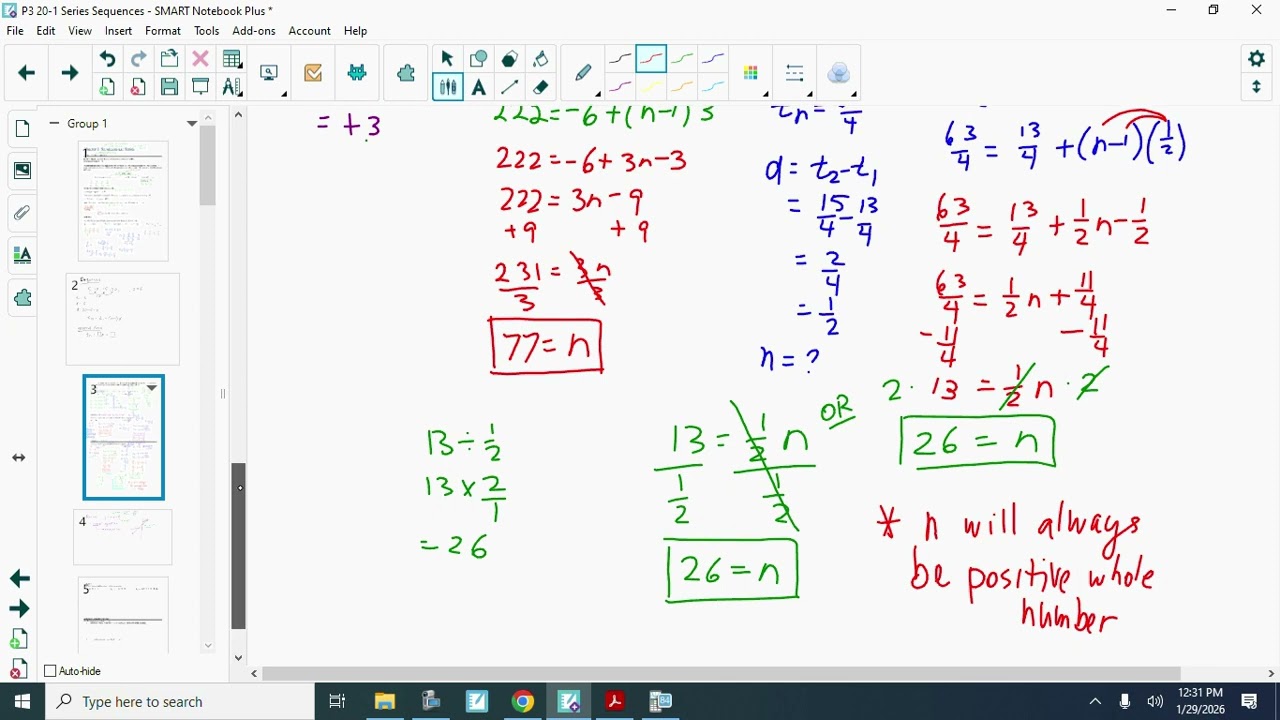 P3 20-1 Series Sequences - SMART Notebook Plus *
File Edit View Insert Format Tools Add-ons Account Help
Group 1
2
3
4
5
Auto-hide
= +3
222=-6+(n-1)3
222=-6+3n-3
222= 3n-9
+9 +9
231/3 = 3n/3
77=n
13 ÷ 1/2
13 × 2/1
= 26
d= t2-t1
= 15/4 - 13/4
= 2/4
= 1/2
n= ?
13 = 1/2 n
1/2 1/2
26=n
OR
63/4 = 13/4 +(n-1)(1/2)
63/4 = 13/4 + 1/2 n - 1/2
63/4 = 1/2 n + 11/4
-11/4 -11/4
2· 13 = 1/2 n ·2
26 = n
* n will always
be positive whole
number
Type here to search
12:31 PM
1/29/2026